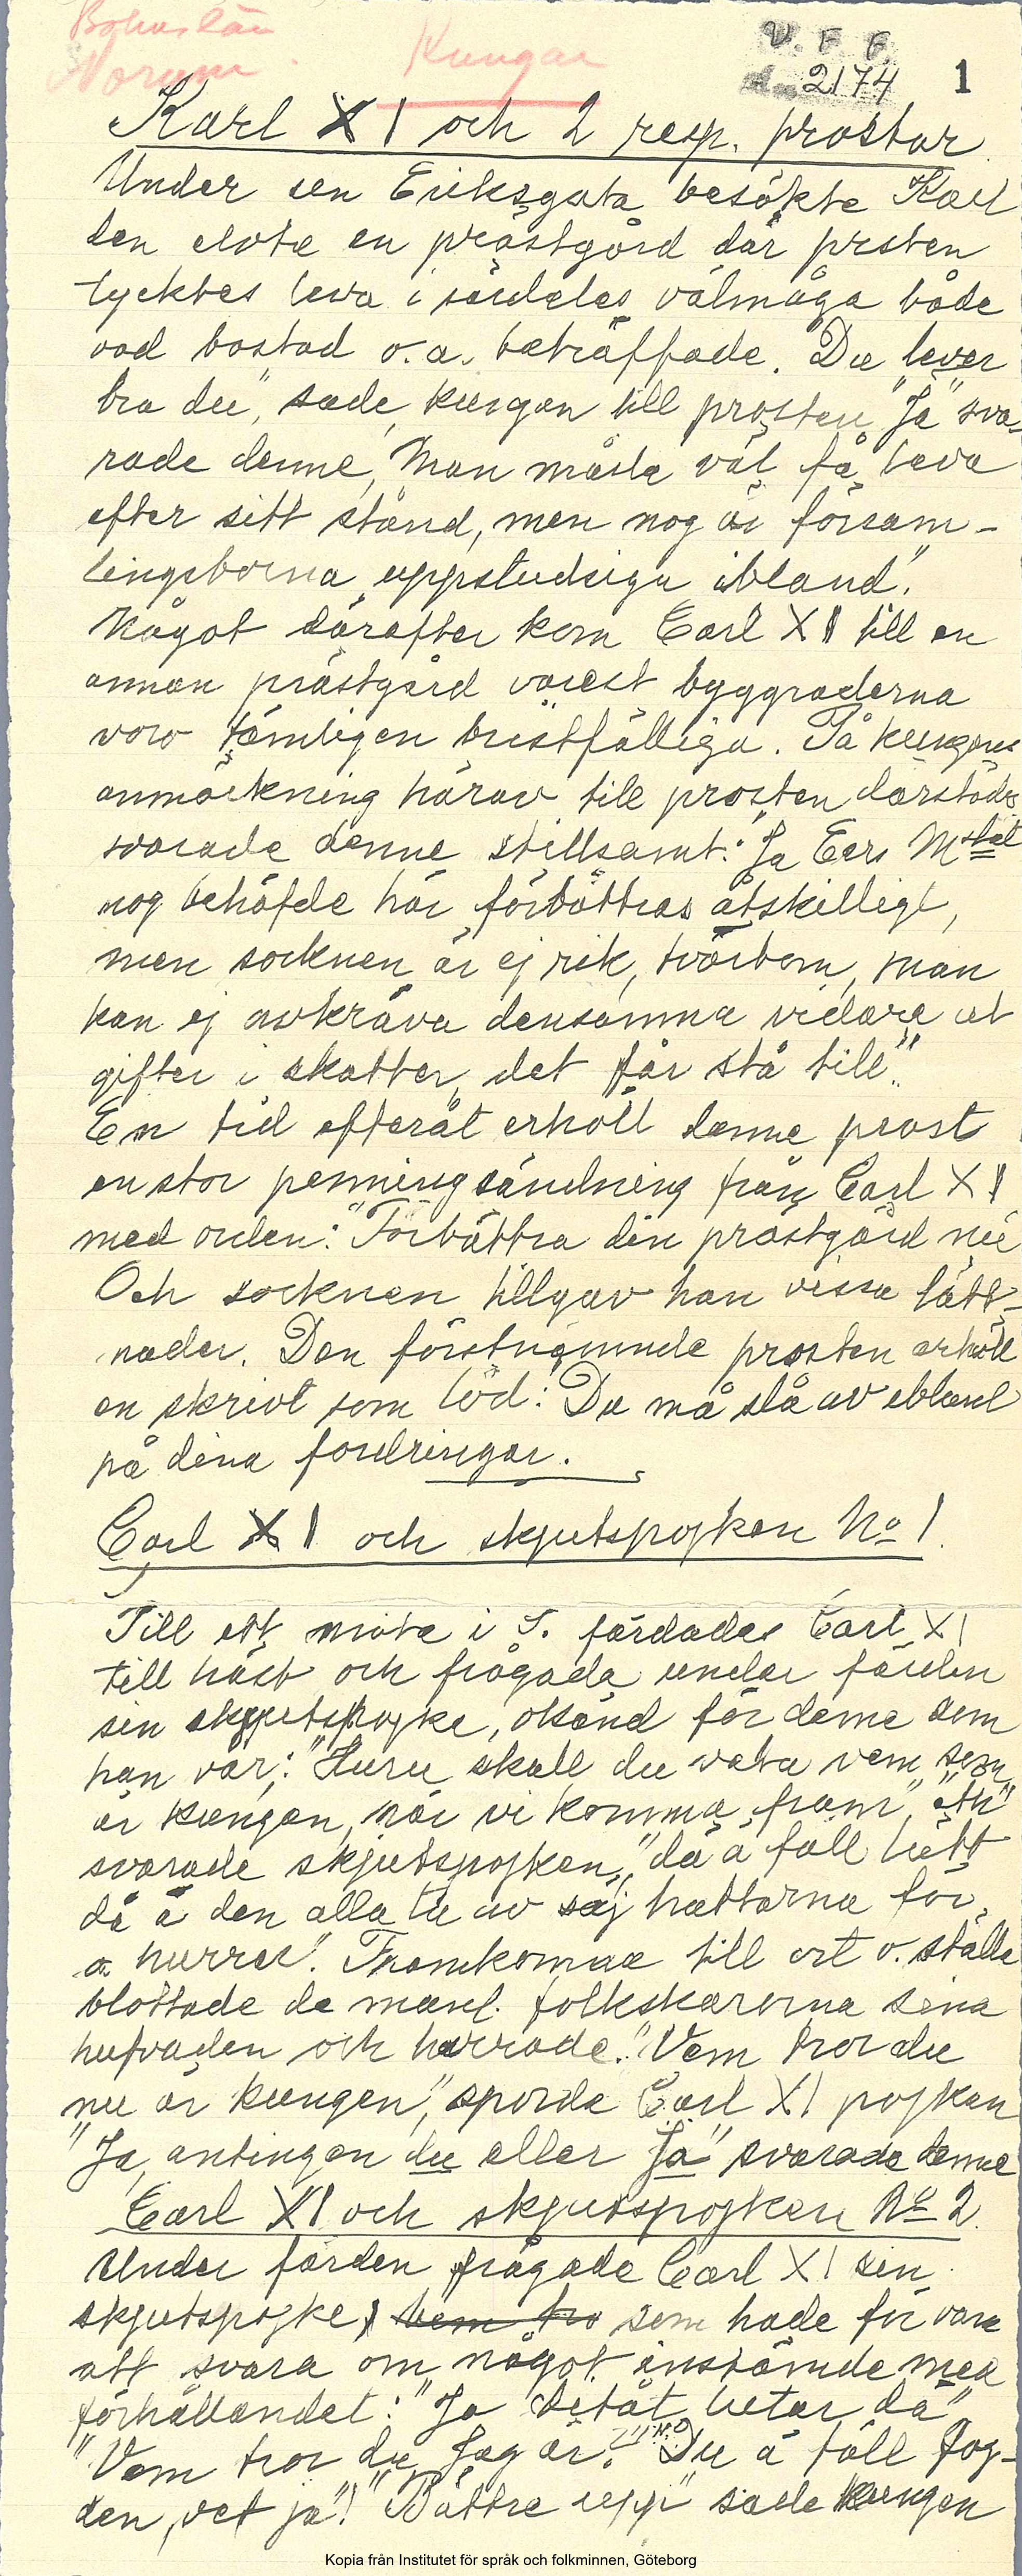 Bohuslän
Norum. Kungar
V. F. F.
2174 1
Karl XI och 2 resp. prostar.
Under sen Eriksgata besökte Karl
den elvte en prästgård där prsten
tycktes leva i särdeles välmåga både
vad bostad o.a. beträffade. Du lever
bra du", sade kungen till prosten "Ja" sva-
rade denne, Man måste väl få leva
efter sitt stånd, men nog är försam-
lingsborna uppstudsiga ibland".
Något därefter kom Carl XI till en
annan prästgård varest byggnaderna
voro tämligen bristfälliga. På kungens
anmärkning härav till prosten därstädes
svarade denne stillsamt: "Ja Eers Mstet
nog behöfde här förbättras åtskilligt,
men socknen är ej rik, tvärtom, man
kan ej avkräva densamma vidare ut
gifter i skatter, det får stå till".
En tid efteråt erhöll denne prost
en stor penningsändning från Carl XI
med orden: "Förbättra din prästgård nu"
Och socknen tillgav han vissa lätt-
nader. Den förstnämnde prosten erhöll
en skrivt som löd: Du må slå av ibland
på dina fordringar.
Carl XI och skjutspojken No 1.
Till ett möte i S. färdades Carl XI
till häst och frågade under färden
sin skjutspojke, okänd för denne som
han var: "Huru skall du veta vem som
är kungen, när vi komma fram", "Åh"
svarade skjutspojken, "då ä fall lätt
dä ä den alla tu av säj hattarna för,
a hurrar". Framkomna till ort o. ställe
blottade de manl. folkskarorna sina
hufvuden och hurrade. "Vem tror du
nu är kungen", sporde Carl XI pojken
"Ja, antingen du eller Ja" svarade denne
Carl XI och skjutspojken No 2.
Under färden frågade Carl XI sin
skjutspojke, som hade för vana
att svara om något instämde med
förhållandet: "Ja detåt letar dä"
"Vem tror du Jag är?" "Du ä fåll Fog-
den, vet ja"! "Bättre upp" sade kungen
Kopia från Institutet för språk och folkminnen, Göteborg